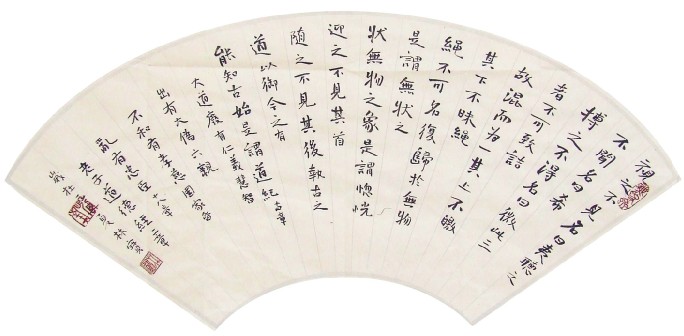 視之不見名曰夷聽之
不聞名曰希
搏之不得名曰微此三
者不可致詰
故混而為一其上不皦
其下不昧繩
繩不可名復歸於無物
是謂無狀之
狀無物之象是謂惚恍
迎之不見其首
隨之不見其後執古之
道以御今之有
能知古始是謂道紀
大道廢有仁義慧智
出有大偽六親
不和有孝慈國家昏
亂有忠臣十八章
老子道德經二章
歲在夏